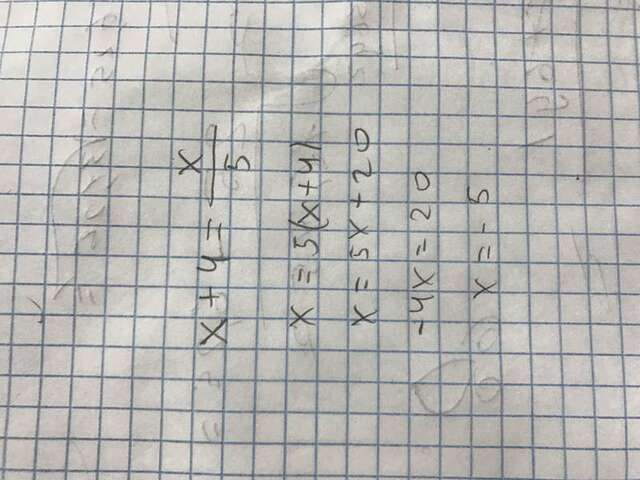 x + 4 = x/5
x = 5(x+4)
x = 5x + 20
-4x = 20
x = -5